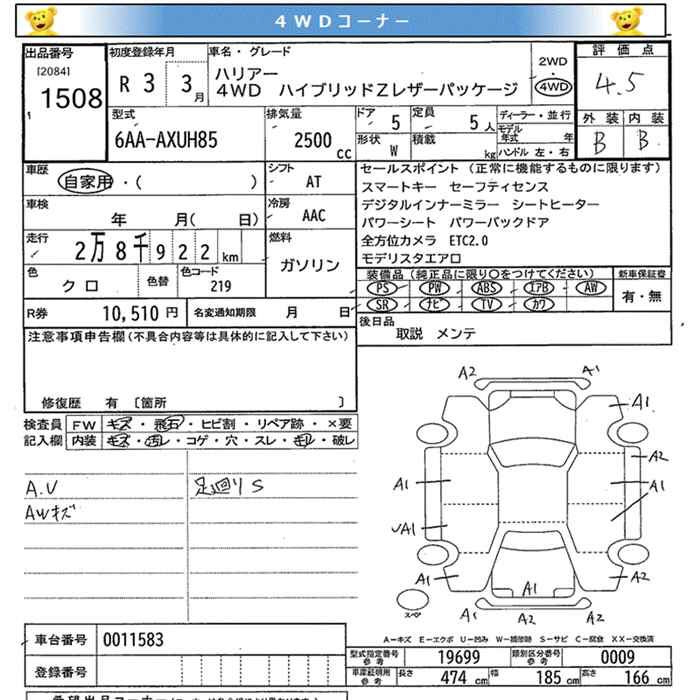 4WDコーナー
出品番号
[2084]
1 1508
初度登録年月
R 3 3月
車名・グレード
ハリアー
4WD ハイブリッドZレザーパッケージ
2WD
・
4WD
評価点
4.5
外装 内装
B B
型式
6AA-AXUH85
排気量
2500cc
ドア 5
形状 W
定員 5人
積載 kg
ディーラー・並行
モデル年式 年
ハンドル 左・右
車歴
自家用・( )
シフト
AT
車検
年 月( 日)
冷房
AAC
走行
2万8千922km
燃料
ガソリン
色
クロ
色替
色コード
219
R券 10,510円
名変通知期限 月 日
セールスポイント (正常に機能するものに限ります)
スマートキー セーフティセンス
デジタルインナーミラー シートヒーター
パワーシート パワーバックドア
全方位カメラ ETC2.0
モデリスタエアロ
装備品(純正品に限り○をつけてください)
PS PW ABS エアB AW
SR ナビ TV カワ
新車保証書
有・無
後日品
取説 メンテ
注意事項申告欄(不具合内容等は具体的に記入して下さい)
修復歴 有 〔箇所 〕
検査員記入欄
FW キズ・飛石・ヒビ割・リペア跡・×要
内装 キズ・汚レ・コゲ・穴・スレ・キレ・破レ
A.V
AWキズ
足廻りS
A2 A1
A1
A2
A1 A1
A1
A1 A1 A2
スペア
A1 A2 A2
A-キズ E-エクボ U-凹み W-補修跡 S-サビ C-腐食 XX-交換済
車台番号 0011583
登録番号
型式指定番号参考 19699
類別区分番号参考 0009
車庫証明用参考 長さ 474cm 幅 185cm 高さ 166cm